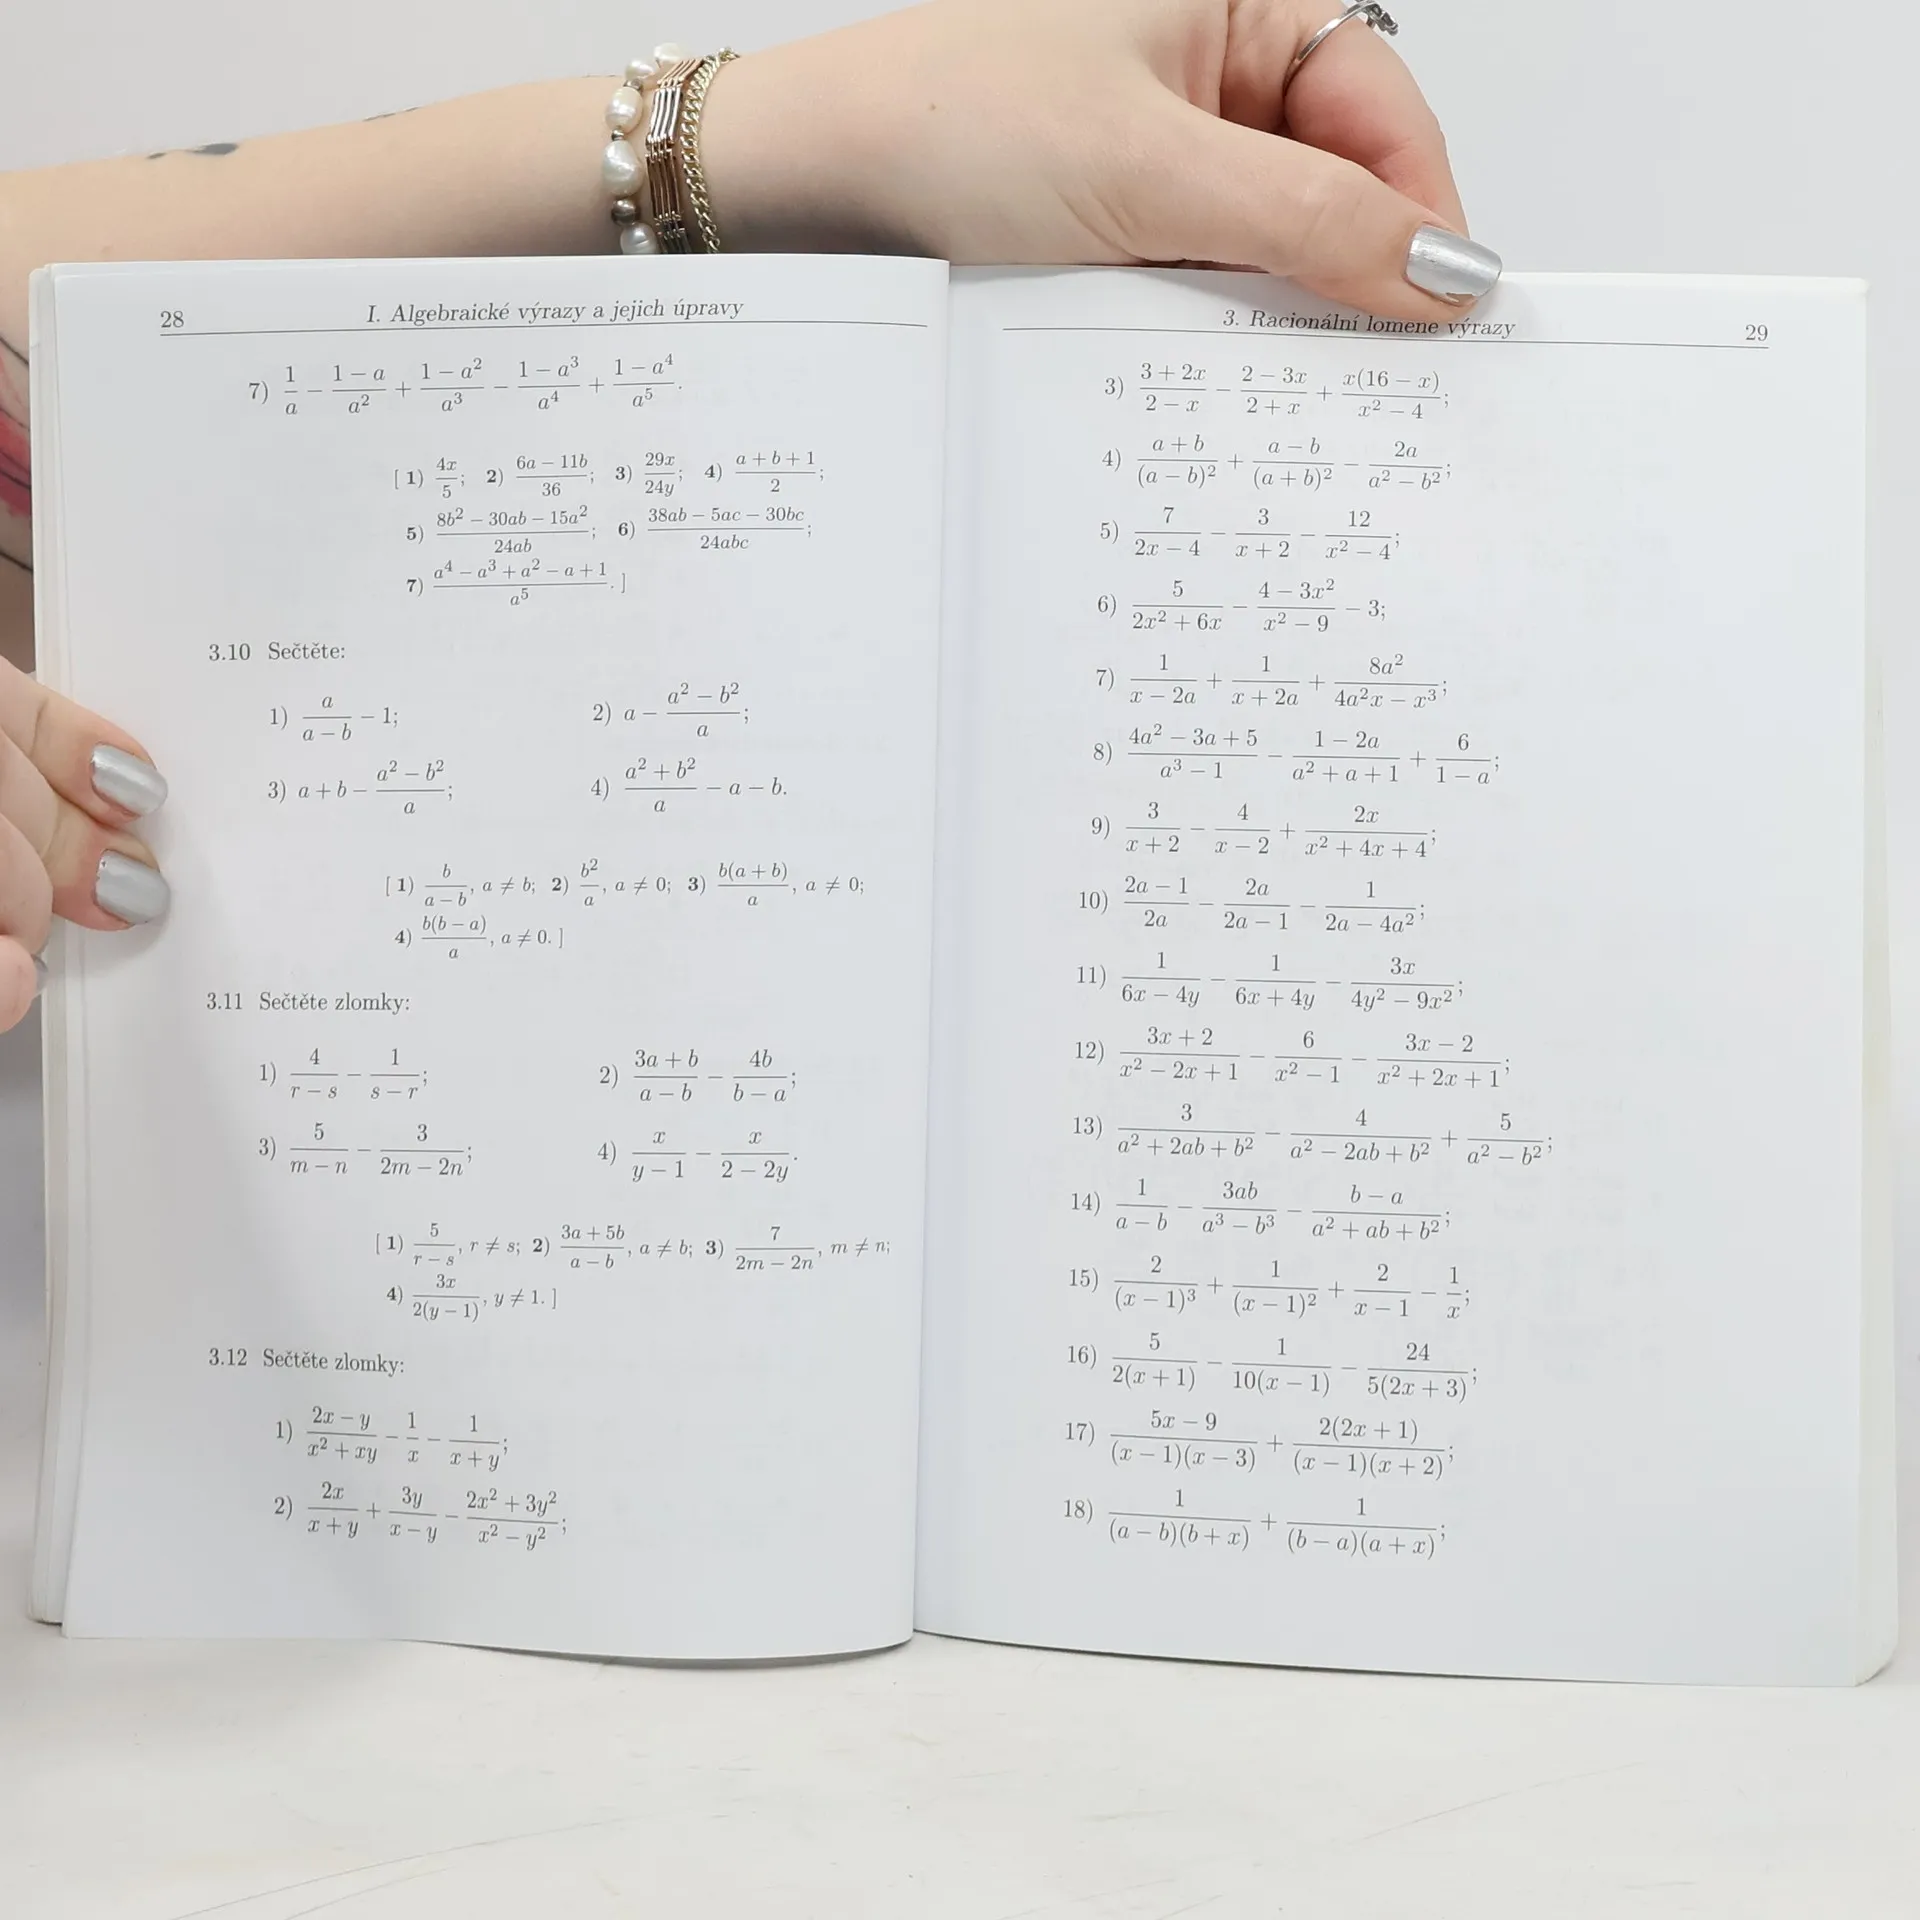 28 I. Algebraické výrazy a jejich úpravy
7) 1/a − (1 − a)/a² + (1 − a²)/a³ − (1 − a³)/a⁴ + (1 − a⁴)/a⁵.
[ 1) 4x/5; 2) (6a − 11b)/36; 3) 29x/24y; 4) (a + b + 1)/2;
5) (8b² − 30ab − 15a²)/24ab; 6) (38ab − 5ac − 30bc)/24abc;
7) (a⁴ − a³ + a² − a + 1)/a⁵. ]
3.10 Sečtěte:
1) a/(a − b) − 1; 2) a − (a² − b²)/a;
3) a + b − (a² − b²)/a; 4) (a² + b²)/a − a − b.
[ 1) b/(a − b), a ≠ b; 2) b²/a, a ≠ 0; 3) b(a + b)/a, a ≠ 0;
4) b(b − a)/a, a ≠ 0. ]
3.11 Sečtěte zlomky:
1) 4/(r − s) − 1/(s − r); 2) (3a + b)/(a − b) − 4b/(b − a);
3) 5/(m − n) − 3/(2m − 2n); 4) x/(y − 1) − x/(2 − 2y).
[ 1) 5/(r − s), r ≠ s; 2) (3a + 5b)/(a − b), a ≠ b; 3) 7/(2m − 2n), m ≠ n;
4) 3x/(2(y − 1)), y ≠ 1. ]
3.12 Sečtěte zlomky:
1) (2x − y)/(x² + xy) − 1/x − 1/(x + y);
2) 2x/(x + y) + 3y/(x − y) − (2x² + 3y²)/(x² − y²);
3. Racionální lomené výrazy 29
3) (3 + 2x)/(2 − x) − (2 − 3x)/(2 + x) + x(16 − x)/(x² − 4);
4) (a + b)/(a − b)² + (a − b)/(a + b)² − 2a/(a² − b²);
5) 7/(2x − 4) − 3/(x + 2) − 12/(x² − 4);
6) 5/(2x² + 6x) − (4 − 3x²)/(x² − 9) − 3;
7) 1/(x − 2a) + 1/(x + 2a) + 8a²/(4a²x − x³);
8) (4a² − 3a + 5)/(a³ − 1) − (1 − 2a)/(a² + a + 1) + 6/(1 − a);
9) 3/(x + 2) − 4/(x − 2) + 2x/(x² + 4x + 4);
10) (2a − 1)/2a − 2a/(2a − 1) − 1/(2a − 4a²);
11) 1/(6x − 4y) − 1/(6x + 4y) − 3x/(4y² − 9x²);
12) (3x + 2)/(x² − 2x + 1) − 6/(x² − 1) − (3x − 2)/(x² + 2x + 1);
13) 3/(a² + 2ab + b²) − 4/(a² − 2ab + b²) + 5/(a² − b²);
14) 1/(a − b) − 3ab/(a³ − b³) − (b − a)/(a² + ab + b²);
15) 2/(x − 1)³ + 1/(x − 1)² + 2/(x − 1) − 1/x;
16) 5/(2(x + 1)) − 1/(10(x − 1)) − 24/(5(2x + 3));
17) (5x − 9)/((x − 1)(x − 3)) + 2(2x + 1)/((x − 1)(x + 2));
18) 1/((a − b)(b + x)) + 1/((b − a)(a + x));